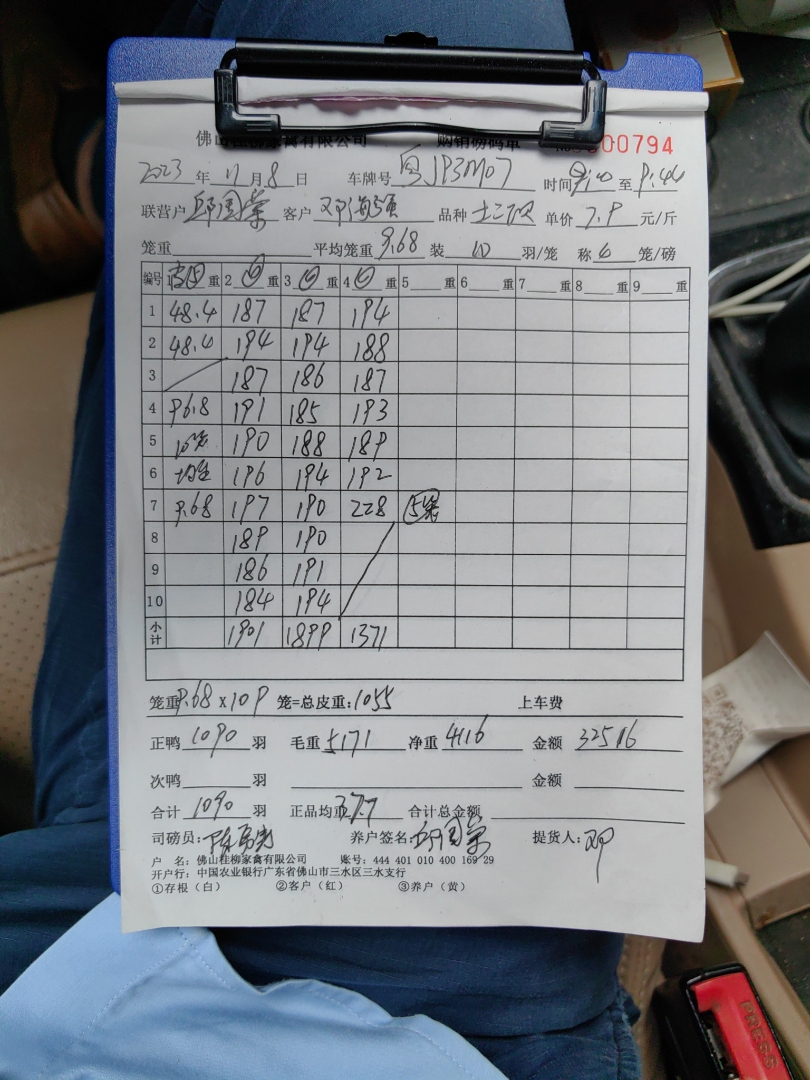 佛山桂柳家禽有限公司 购销磅码单 0000794
2023 年 11 月 8 日 车牌号 粤JP3M07 时间 至 9:44
联营户 邱国荣 客户 邓海强 品种 单价 7.9 元/斤
笼重 平均笼重 9.68 装 10 羽/笼 称 6 笼/磅
编号 1 重 2 重 3 重 4 重 5 重 6 重 7 重 8 重 9 重
1 48.4 187 187 194
2 48.4 194 194 188
3 187 186 187
4 96.8 191 185 193
5 10笼 190 188 189
6 均重 196 194 192
7 9.68 197 190 228 5笼
8 189 190
9 186 191
10 184 194
小计 1901 1899 1371
笼重9.68×109 笼=总皮重:1055 上车费
正鸭 1090 羽 毛重 5171 净重 4116 金额 32516
次鸭 羽 金额
合计 1090 羽 正品均重 3.77 合计总金额
司磅员: 养户签名: 邱国荣 提货人: 邓
户 名: 佛山桂柳家禽有限公司 账号: 444 401 010 400 169 29
开户行: 中国农业银行广东省佛山市三水区三水支行
①存根（白） ②客户（红） ③养户（黄）